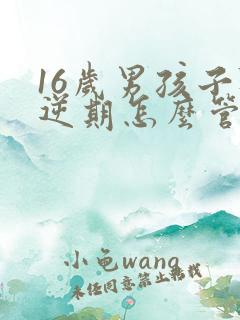 16歲男孩子
逆期怎麼管
小龟wang
未经同意禁止转载